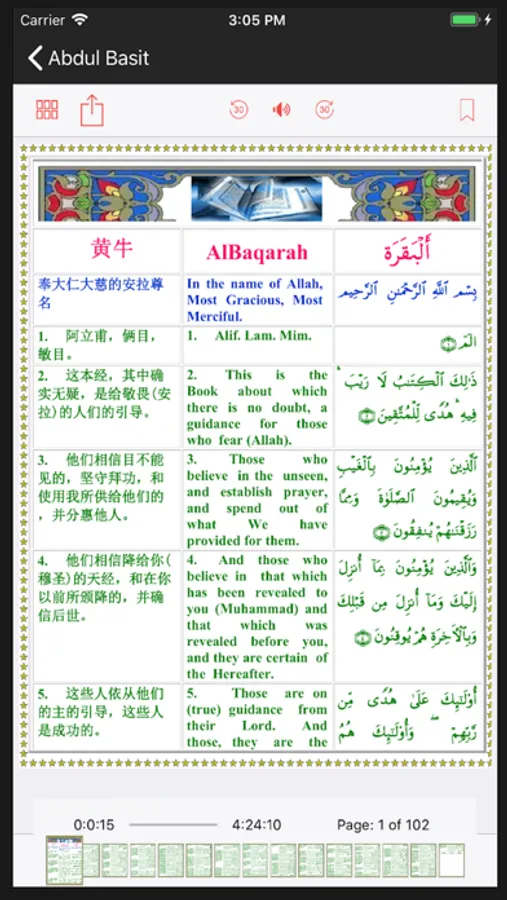 Carrier 3:05 PM
Abdul Basit
30 30
黄牛
AlBaqarah
أَلْبَقَرَة
奉大仁大慈的安拉尊
名
In the name of Allah,
Most Gracious, Most
Merciful.
بِسْمِ ٱللَّهِ ٱلرَّحْمَٰنِ ٱلرَّحِيمِ
1. 阿立甫，俩目，
敏目。
1. Alif. Lam. Mim.
الٓمٓ ١
2. 这本经，其中确
实无疑，是给敬畏(安
拉)的人们的引导。
2. This is the
Book about which
there is no doubt, a
guidance for those
who fear (Allah).
ذَٰلِكَ ٱلْكِتَٰبُ لَا رَيْبَ ۛ
فِيهِ ۛ هُدًى لِّلْمُتَّقِينَ ٢
3. 他们相信目不能
见的，坚守拜功，和
使用我所供给他们的
，并分惠他人。
3. Those who
believe in the unseen,
and establish prayer,
and spend out of
what We have
provided for them.
ٱلَّذِينَ يُؤْمِنُونَ بِٱلْغَيْبِ
وَيُقِيمُونَ ٱلصَّلَوٰةَ وَمِمَّا
رَزَقْنَٰهُمْ يُنفِقُونَ ٣
4. 他们相信降给你(
穆圣)的天经，和在你
以前所颁降的，并确
信后世。
4. And those who
believe in that which
has been revealed to
you (Muhammad) and
that which was
revealed before you,
and they are certain of
the Hereafter.
وَٱلَّذِينَ يُؤْمِنُونَ بِمَآ أُنزِلَ
إِلَيْكَ وَمَآ أُنزِلَ مِن قَبْلِكَ
وَبِٱلْءَاخِرَةِ هُمْ يُوقِنُونَ ٤
5. 这些人依从他们
的主的引导，这些人
是成功的。
5. Those are on
(true) guidance from
their Lord. And
those, they are the
أُو۟لَٰٓئِكَ عَلَىٰ هُدًى مِّن
رَّبِّهِمْ ۖ وَأُو۟لَٰٓئِكَ هُمُ
0:0:15 4:24:10 Page: 1 of 102